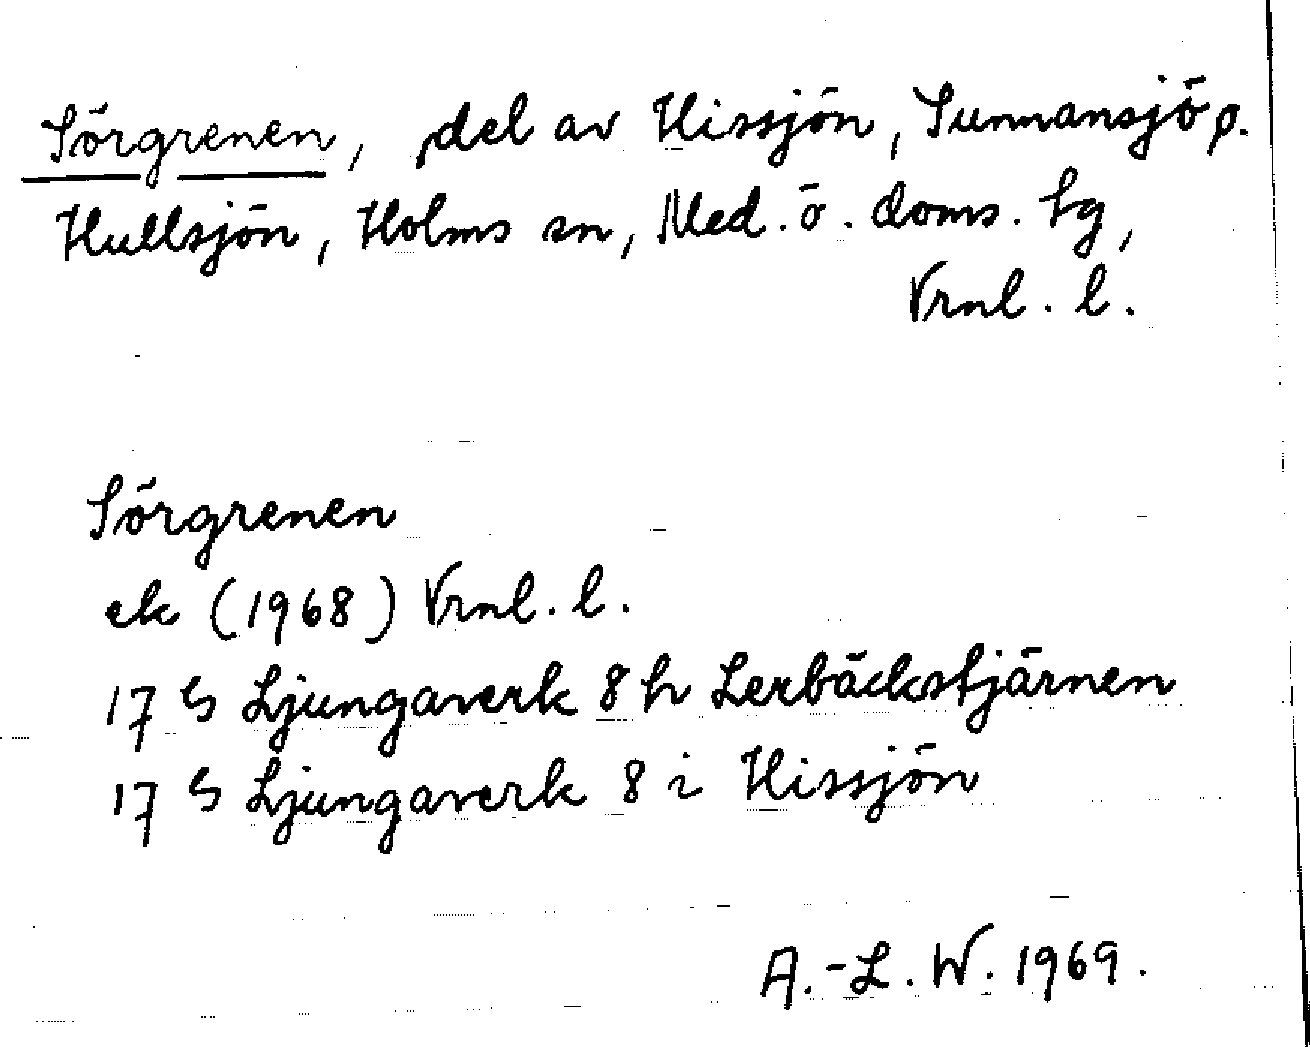 Sörgrenen, del av Hissjön, Sunnansjö o.
Hullsjön, Holms sn, Med. ö. doms. tg,
Vrnl. l.
Sörgrenen
ek (1968) Vrnl. l.
17 G Ljungaverk 8 h Lerbäckstjärnen
17 G Ljungaverk 8 i Hissjön
A.-L. W. 1969.